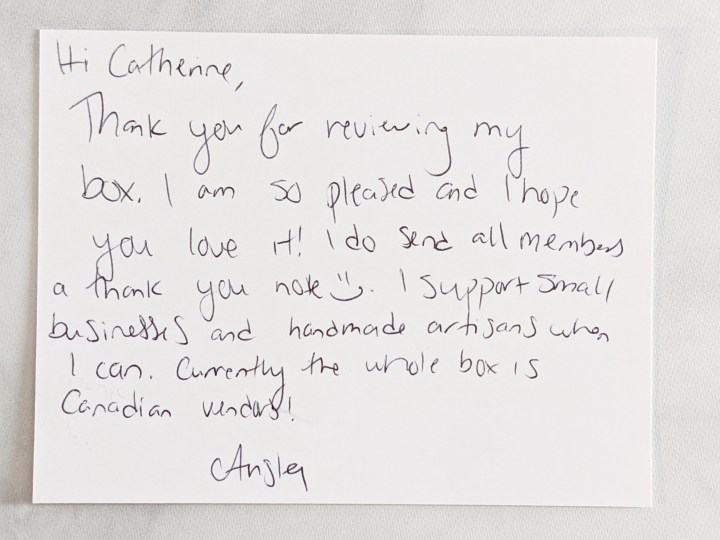 Hi Catherine,
Thank you for reviewing my
box. I am so pleased and I hope
you love it! I do send all members
a thank you note. I support small
businesses and handmade artisans when
I can. Currently the whole box is
Canadian vendors!